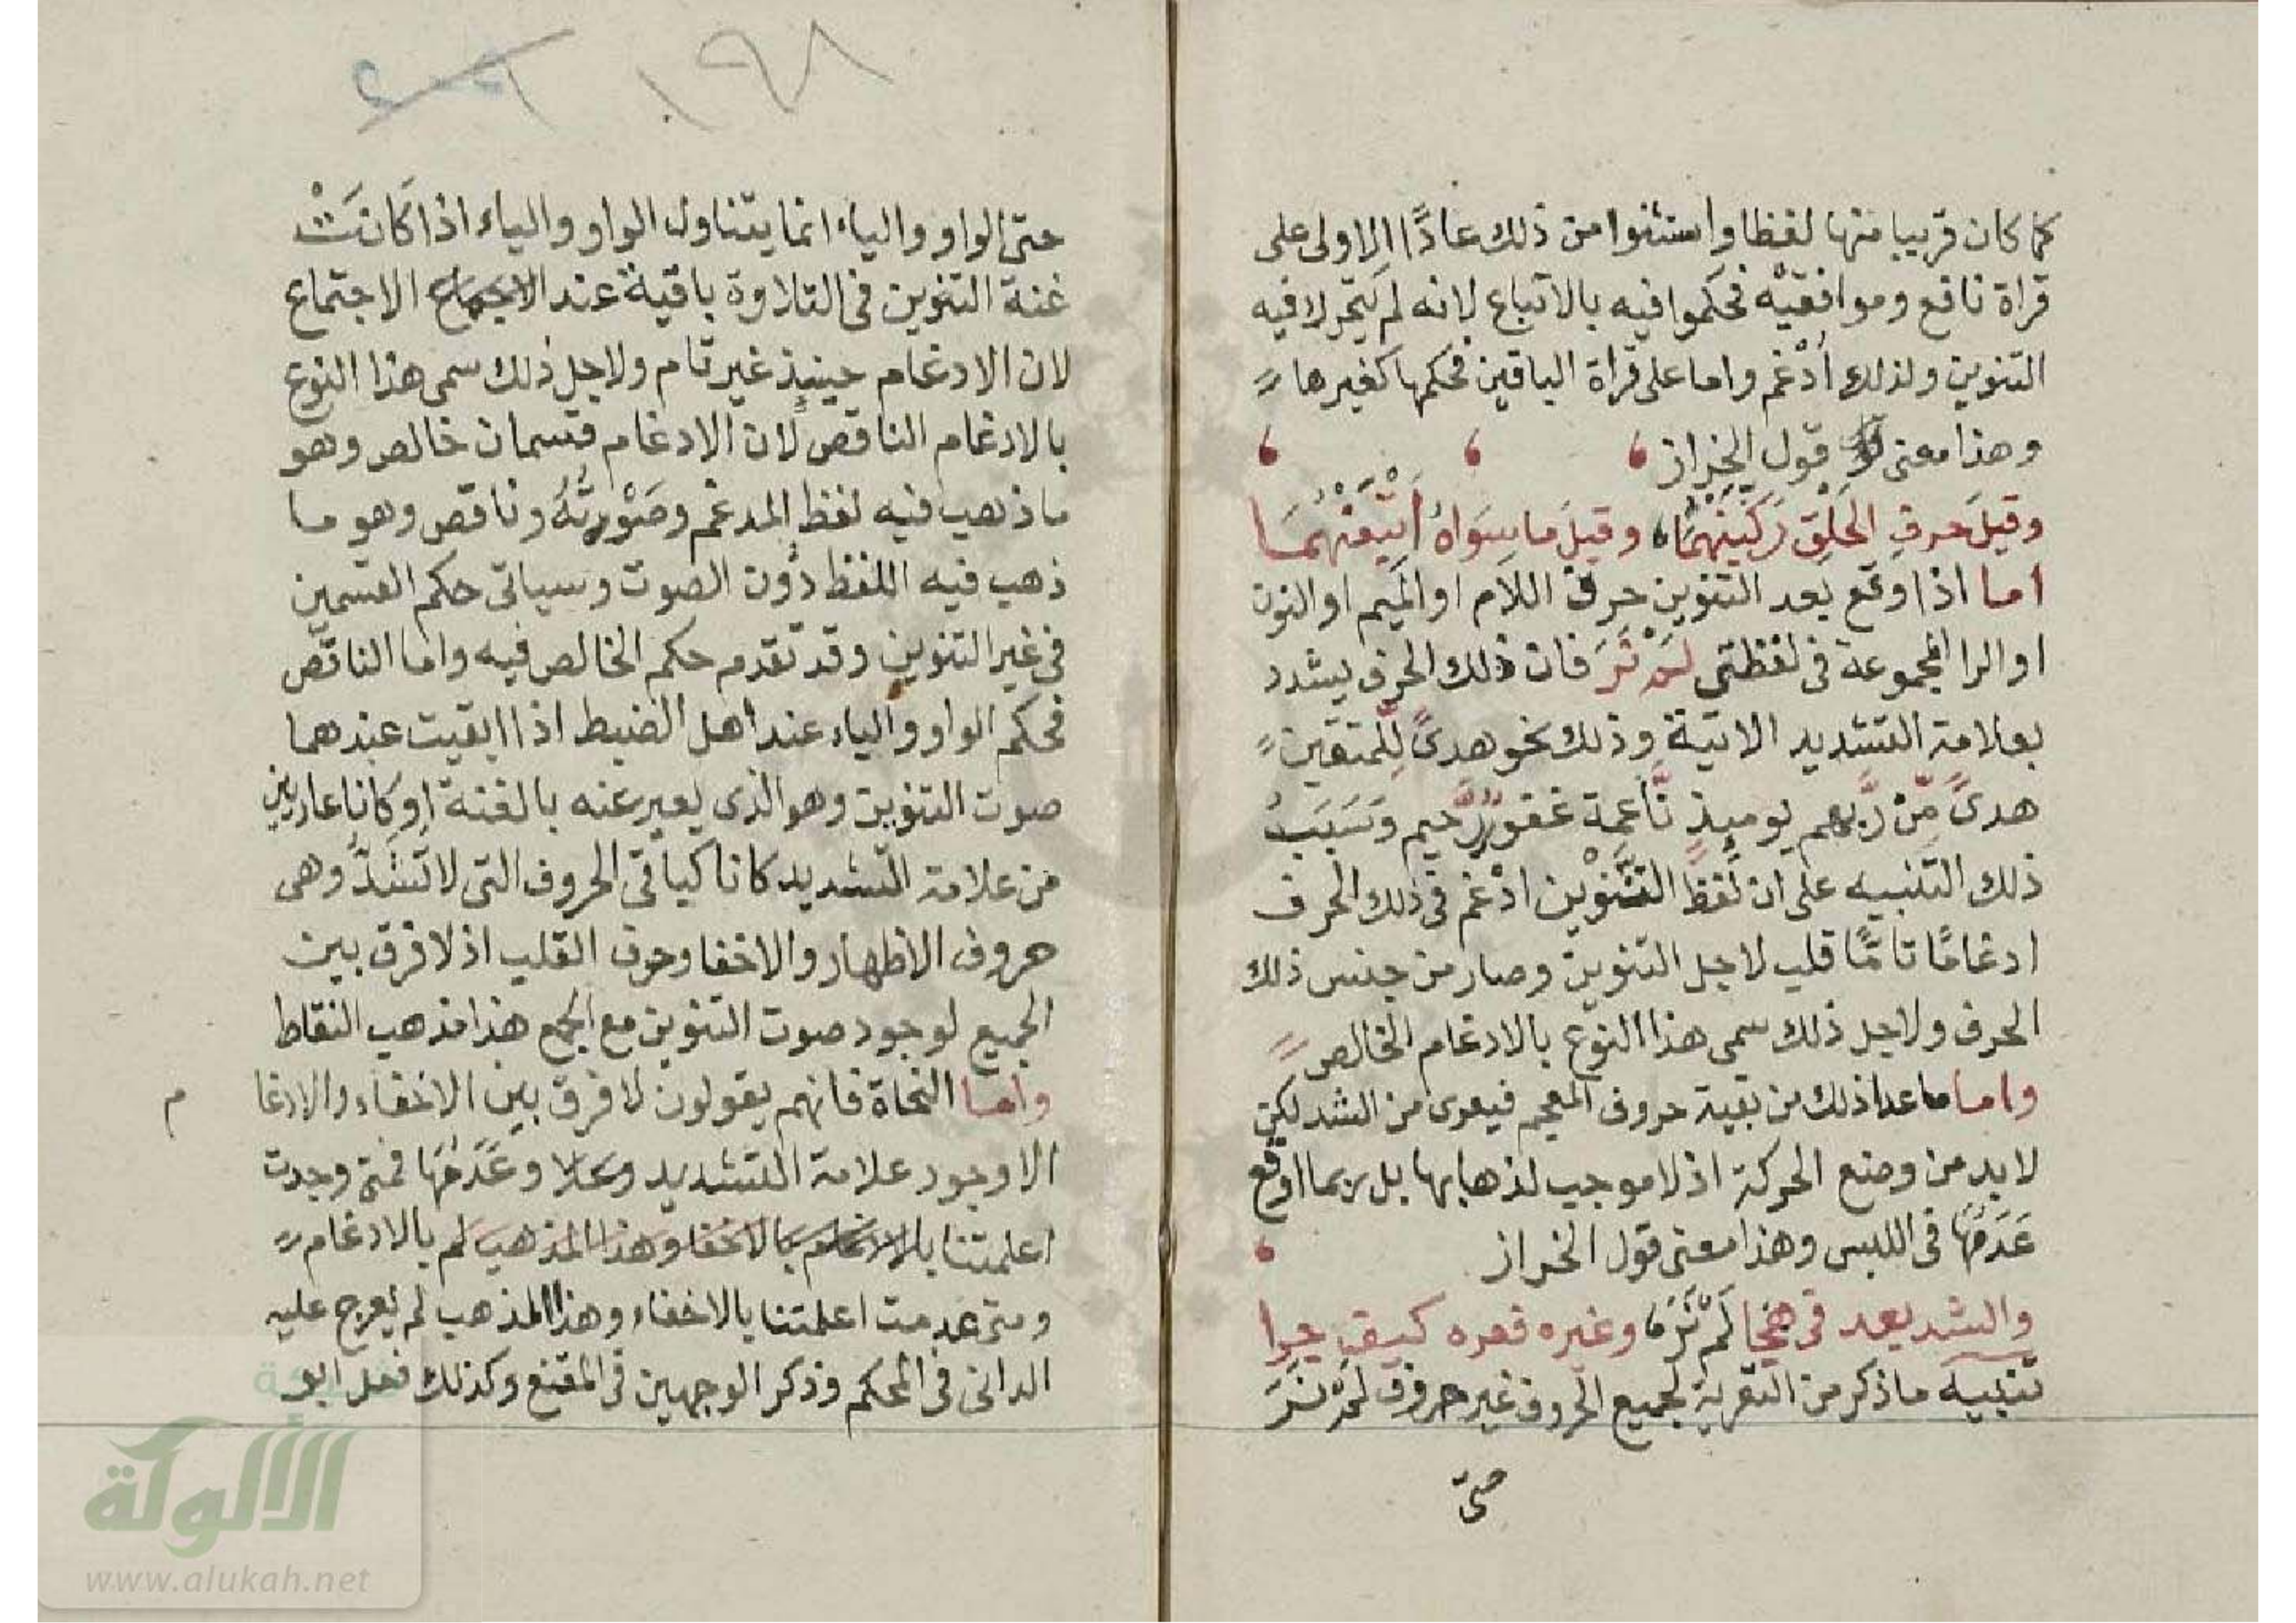 كما كان قريبا منها لفظا واستثنوا من ذلك عادًا الاولى على
قراة نافع وموافقيْه فحكموا فيه بالاتباع لانه لم يتحر لا فيه
التنوين ولذلك أدْغم واما على قراة الباقين فحكمها كغيرها
وهذا معنى قول الخراز
وقبلَ حرفِ الحَلْقِ رَكَّبْتَهُمَا وقبلَ ما سِوَاهُ أَتْبَعْتَهُمَا
اما اذا وقع بعد التنوين حرف اللام او الميم او النون
او الرا المجموعة في لفظتي لَمْ نَرَ فان ذلك الحرف يشدد
بعلامة التشديد الاتية وذلك نحو هدىً لِّلمتقين
هدىً مِّن رَّبهم يوميذٍ نَّاعِمة غفورٌ رَّحيم وَسَبَبُ
ذلك التنبيه على ان لفظ التنْوين ادْغم في ذلك الحرف
ادغامًا تامًّا قلب لاجل التنوين وصار من جنس ذلك
الحرف ولاجل ذلك سمى هذا النوع بالادغام الخالص
واما ما عدا ذلك من بقية حروف المعجم فيعرى من الشد لكن
لا بد من وضع الحركة اذ لا موجب لذهابها بل ربما اوقع
عَدَمُهَا في اللبس وهذا معنى قول الخراز
والشد بعد في هجا لَمْ نَرَ وغيره فعره كيف جرا
تنبيه ما ذكر من التعرية لجميع الحروف غير حروف لَمْ نَرَ
حتى
١٩٨
حتى الواو والياء انما يتناول الواو والياء اذا كَانَتْ
غنة التنوين في التلاوة باقية عند الاجماع الاجتماع
لان الادغام حينيذٍ غير تام ولاجل ذلك سمى هذا النوع
بالادغام الناقص لان الادغام قسمان خالص وهو
ما ذهب فيه لفظ المدغم وصَوْتُهُ وناقص وهو ما
ذهب فيه اللفظ دُون الصوت وسياتى حكم القسمين
في غير التنوين وقد تقدم حكم الخالص فيه واما الناقص
فحكم الواو والياء عند اهل الضبط اذا ابقيت عندهما
صوت التنوين وهو الذى يعبر عنه بالغنة او كانا عاريين
من علامة التشديد كانا كباقى الحروف التى لا تُشَدُّ وهى
حروف الاظهار والاخفا وحرف القلب اذ لا فرق بين
الجميع لوجود صوت التنوين مع الجمع هذا مذهب النقاط
واما النحاة فانهم يقولون لا فرق بين الاخفاء والادغا م
الا وجود علامة التشديد وعَدَمُهَا فمتى وجدت
اعلمتنا بالادغام بالاخفا وهذا المذهب لم بالادغام
ومتى عدمت اعلمتنا بالاخفاء وهذا المذهب لم يعرج عليه
الدانى في المحكم وذكر الوجهين في المقنع وكذلك فعل ابو
شبكة
الألوكة
www.alukah.net